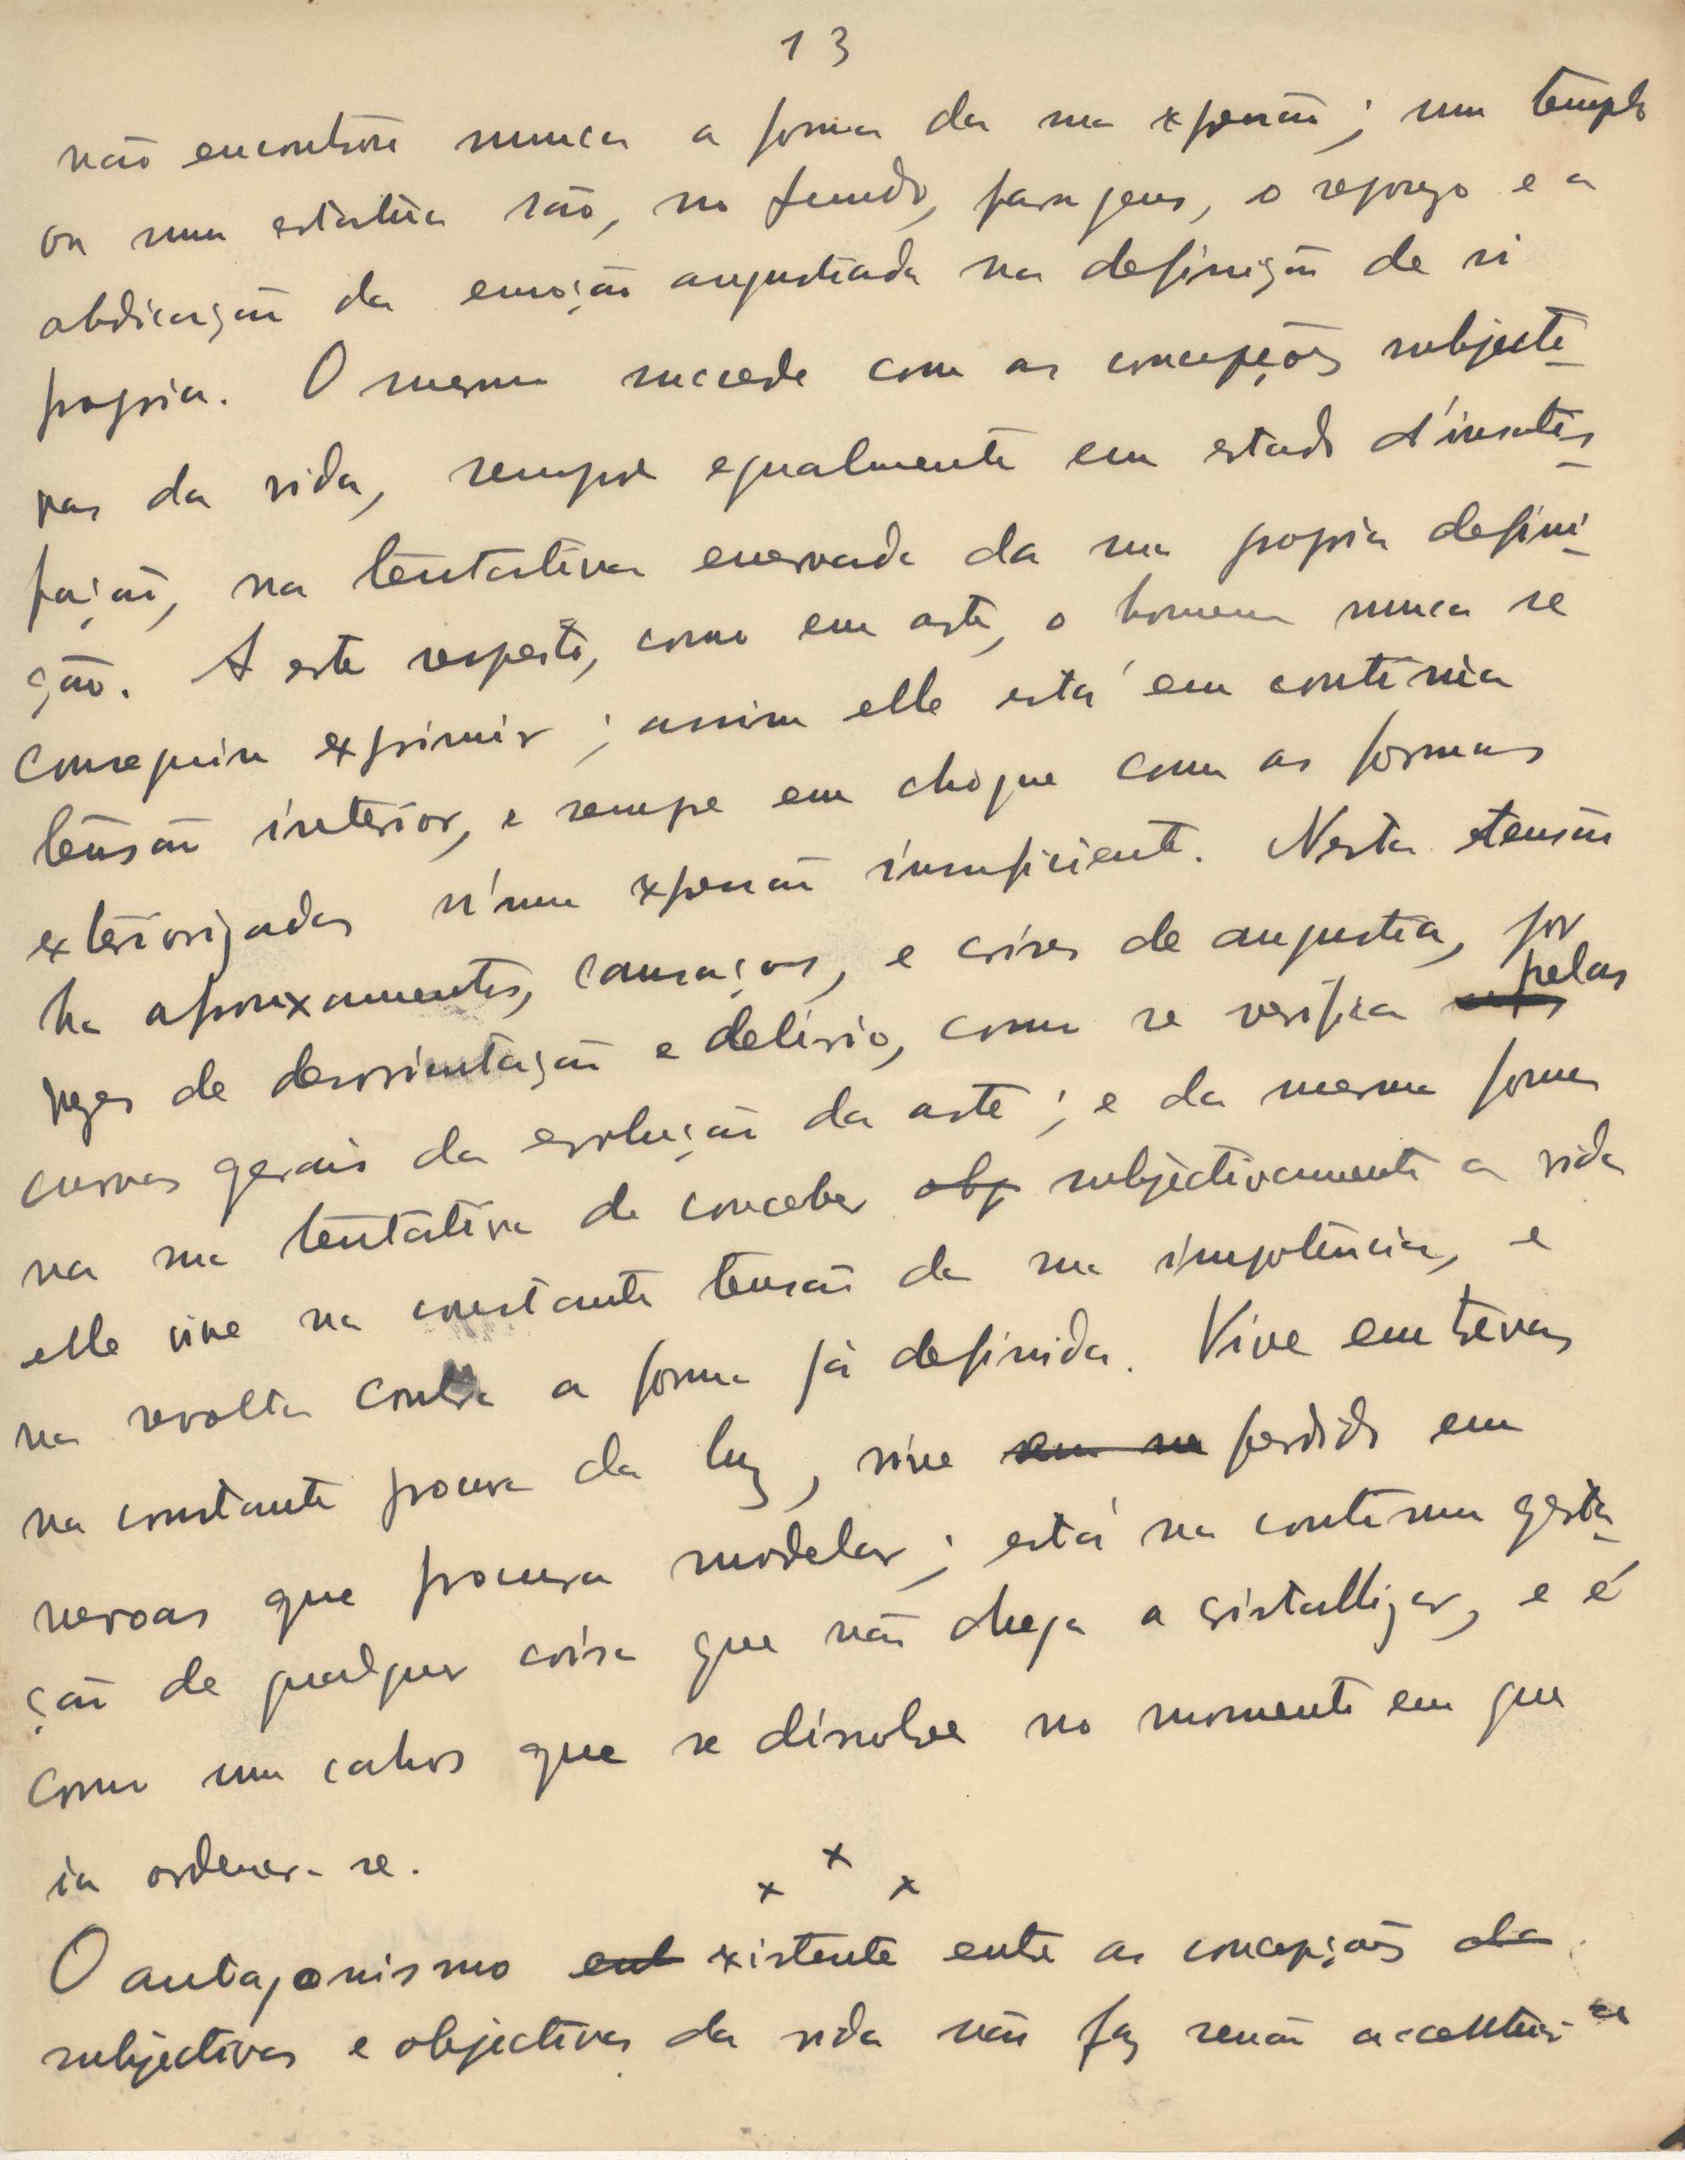 13
não encontrou nunca a forma da sua expressão; um templo
ou uma estatua são, no fundo, para jeus, o repouzo e a
abdicação da emoção angustiada na definição de si
propria. O mesmo succede com as concepções subjecti-
vas da vida, sempre egualmente em estado d'insatis-
fação, na tentativa enervada da sua propria defini-
ção. A este respeito, como em arte, o homem nunca se
conseguiu exprimir; assim elle está em continua
tensão interior, e sempre em choque com as formas
exteriorizadas n'uma expressão insuficiente. Nesta tensão
ha afrouxamentos, cansaços, e crises de angustia, por
vezes de desorientação e delirio, como se verifica pelas
curvas gerais da evolução da arte; e da mesma forma
na sua tentativa de conceber obj subjectivamente a vida
elle vive na constante tensão da sua impotencia, e
na revolta contra a forma já definida. Vive em trevas
na constante procura da luz, vive perdido em
nevoas que procura modelar; está na continua gesta-
ção de qualquer coisa que não chega a cristallizar, e é
como um cahos que se dissolve no momento em que
ia ordenar-se.
x x x
O antagonismo ent existente entre as concepções da
subjectivas e objectivas da vida não faz senão accentuar-se